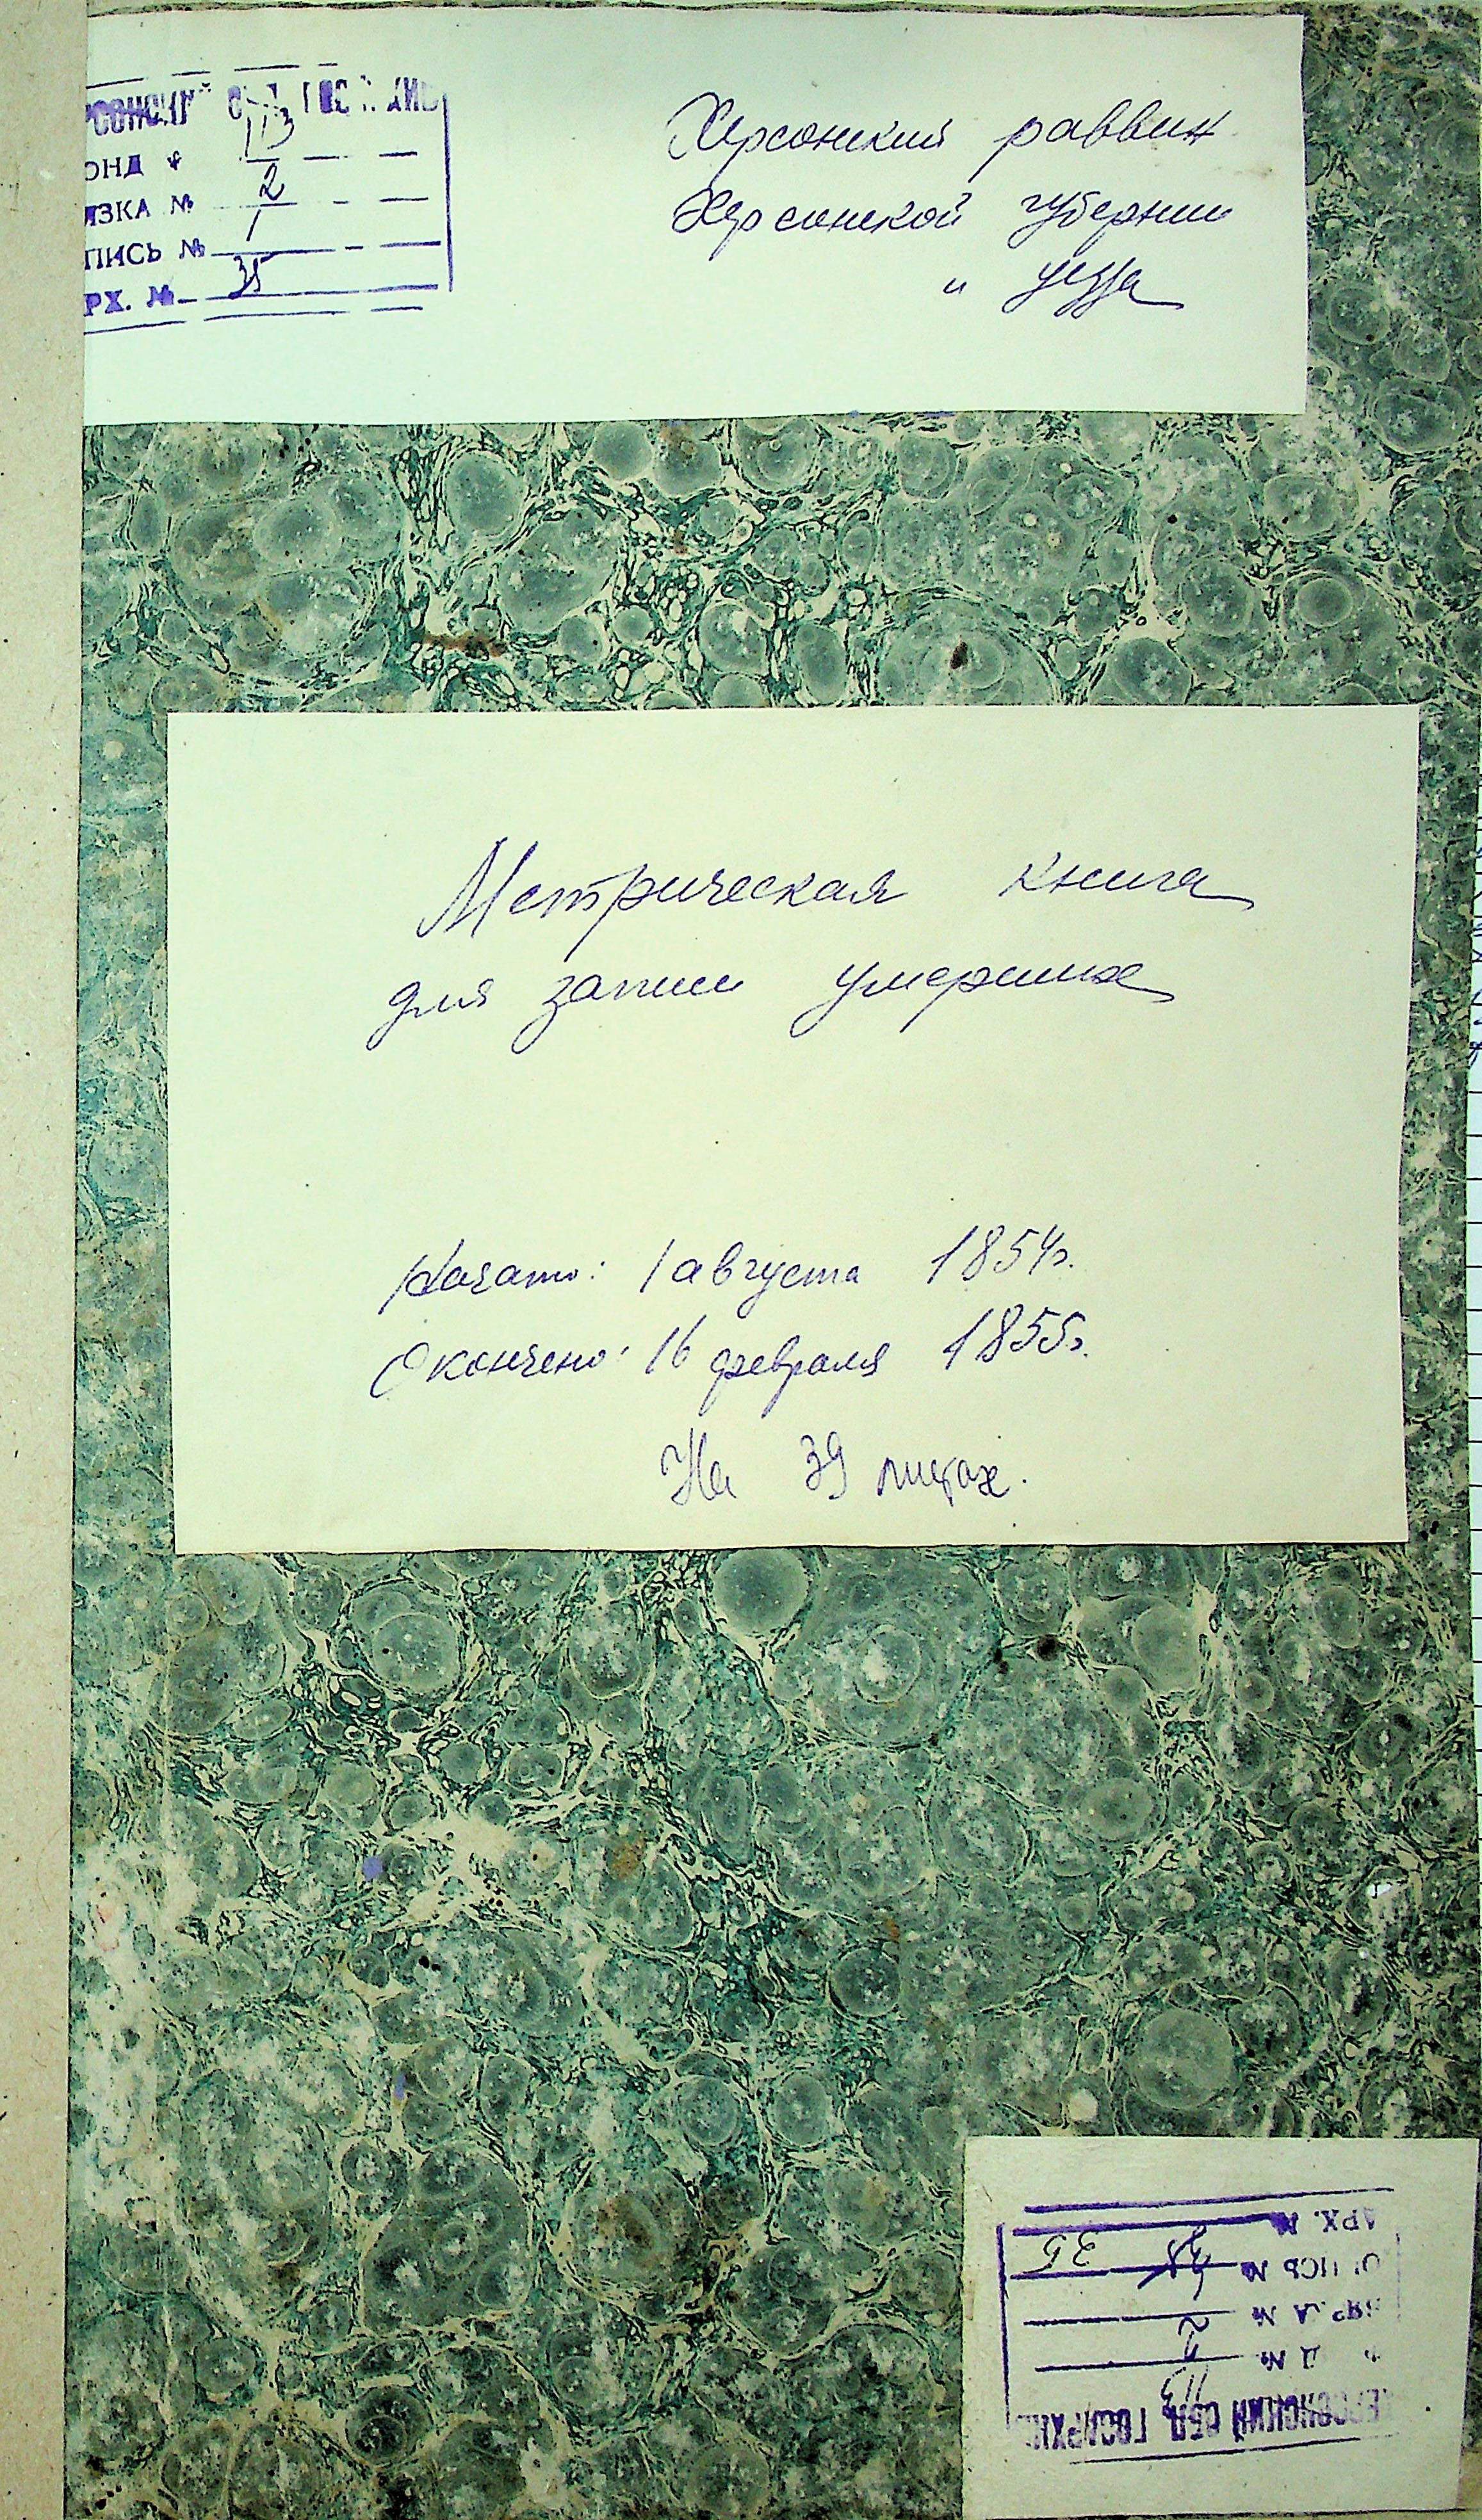 РСОНСКИЙ ОБЛ ГОСАРХИВ
ОНД № 113
ЯЗКА № 2
ПИСЬ № 1
РХ. № 35
Херсонский раввин
Херсонской губернии
и уезда
Метрическая книга
для записи умерших
Начато: 1 августа 1854г.
Окончено: 16 февраля 1855г.
На 39 листах.
ХЕРСОНСКИЙ ОБЛ. ГОСАРХИВ
Д № 113
№ 2
ПИСЬ №
АРХ. № 35